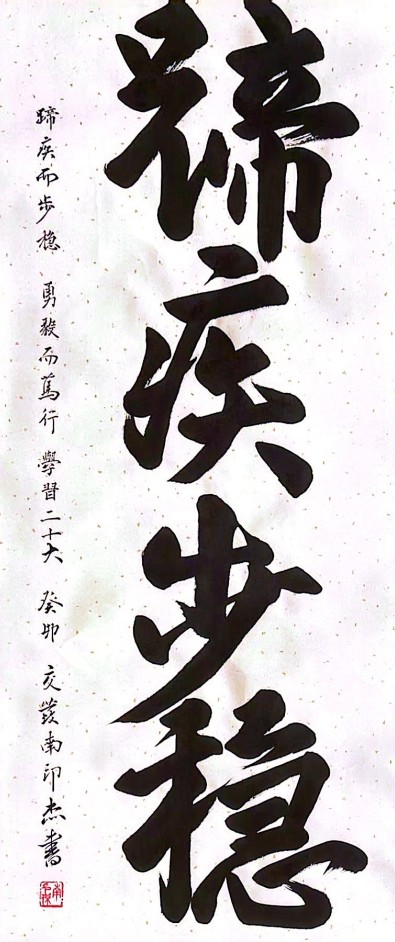 蹄疾步稳
蹄疾而步稳 勇毅而篤行 學習二十大 癸卯 交 南印杰書